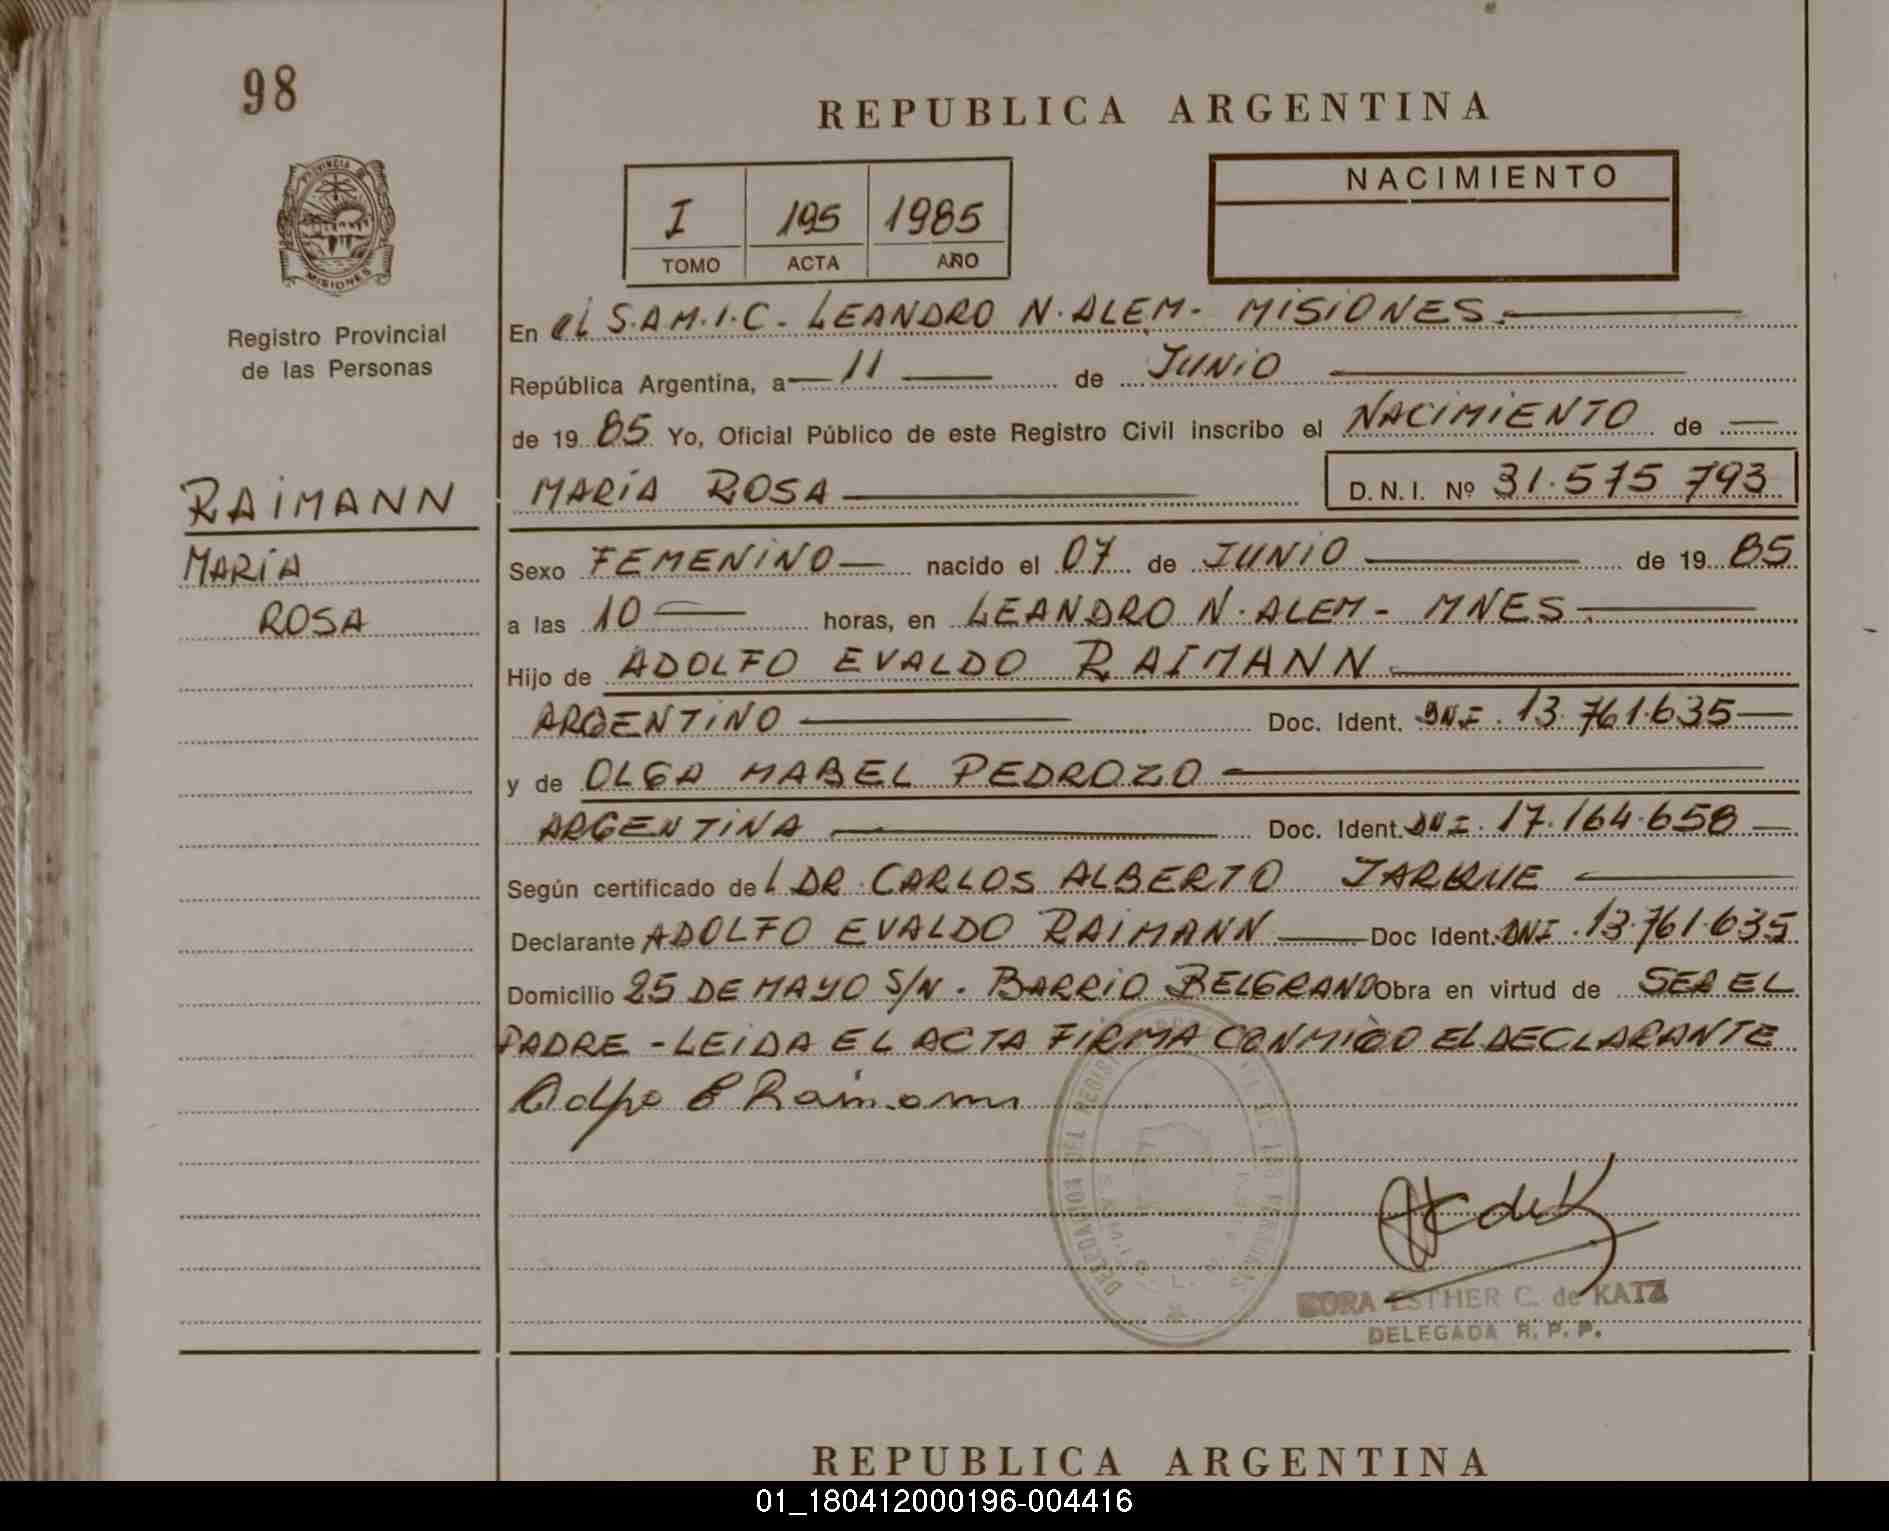 98
REPUBLICA ARGENTINA
PROVINCIA DE
MISIONES
Registro Provincial
de las Personas
I 195 1985
TOMO ACTA AÑO
NACIMIENTO
En el S.A.M.I.C. LEANDRO N. ALEM - MISIONES.
República Argentina, a 11 de JUNIO
de 19 85 Yo, Oficial Público de este Registro Civil inscribo el NACIMIENTO de
RAIMANN
MARÍA
ROSA
MARÍA ROSA D.N.I. Nº 31.575 793
Sexo FEMENINO nacido el 07 de JUNIO de 19 85
a las 10 horas, en LEANDRO N. ALEM - MNES
Hijo de ADOLFO EVALDO RAIMANN
ARGENTINO Doc. Ident. DNI. 13.761.635
y de OLGA MABEL PEDROZO
ARGENTINA Doc. Ident. DNI. 17.164.658
Según certificado del DR. CARLOS ALBERTO JARQUE
Declarante ADOLFO EVALDO RAIMANN Doc Ident. DNI. 13.761.635
Domicilio 25 DE MAYO S/N. BARRIO BELGRANO Obra en virtud de SER EL
PADRE - LEIDA EL ACTA FIRMA CONMIGO EL DECLARANTE
Adolfo E Raimann
DELEGACION DEL REGISTRO DE LAS PERSONAS
DORA ESTHER C. de KATZ
DELEGADA R. P. P.
REPUBLICA ARGENTINA
01_180412000196-004416